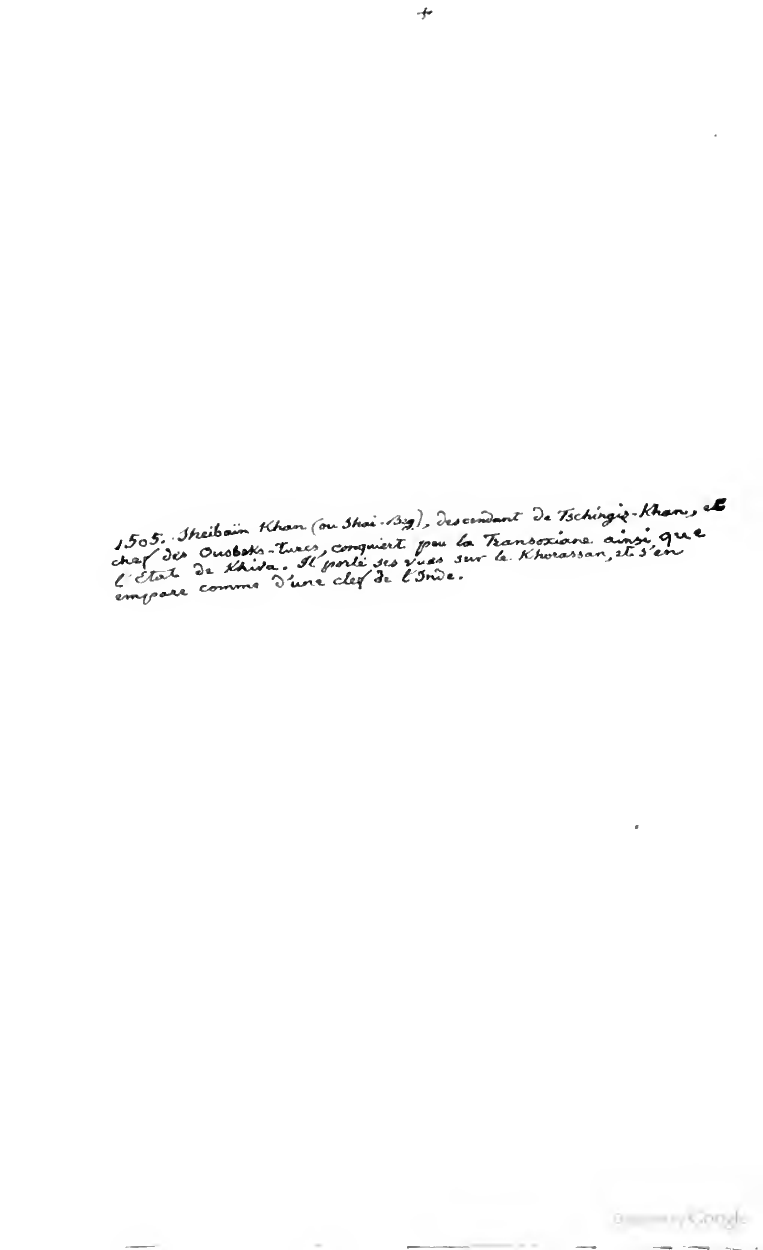 +
1505. Sheibaïn Khan (ou Shai-Beg), descendant de Tschingis-Khan, et
chef des Ousbeks-turcs, conquiert peu la Transoxiane ainsi que
l'Etat de Khiva. Il porte ses vues sur le Khorassan, et s'en
empare comme d'une clef de l'Inde.
Digitized by Google